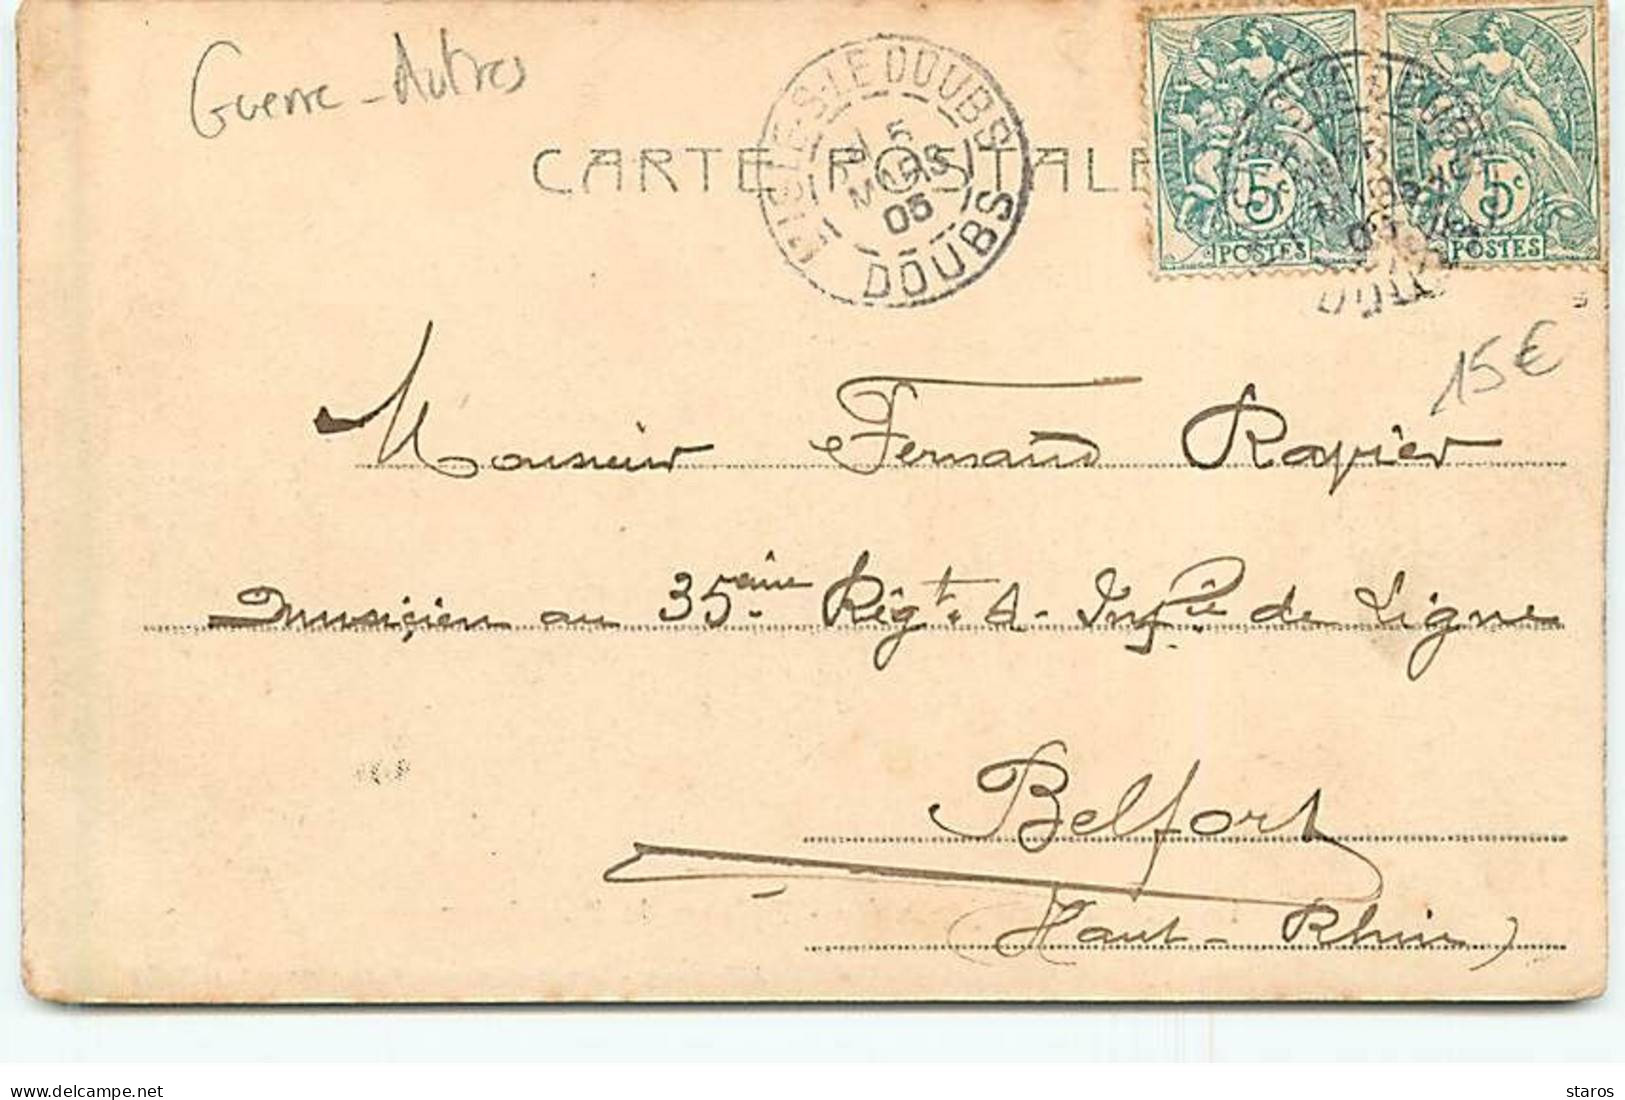 Guerre - Autres
L'ISLE-S-LE DOUBS
5
MARS
05
DOUBS
CARTE POSTALE
5c
POSTES
5c
POSTES
15€
Monsieur Fernand Rapier
musicien au 35ème Régt. d'Infie de Ligne
Belfort
(Haut-Rhin)
delcampe.net
staros